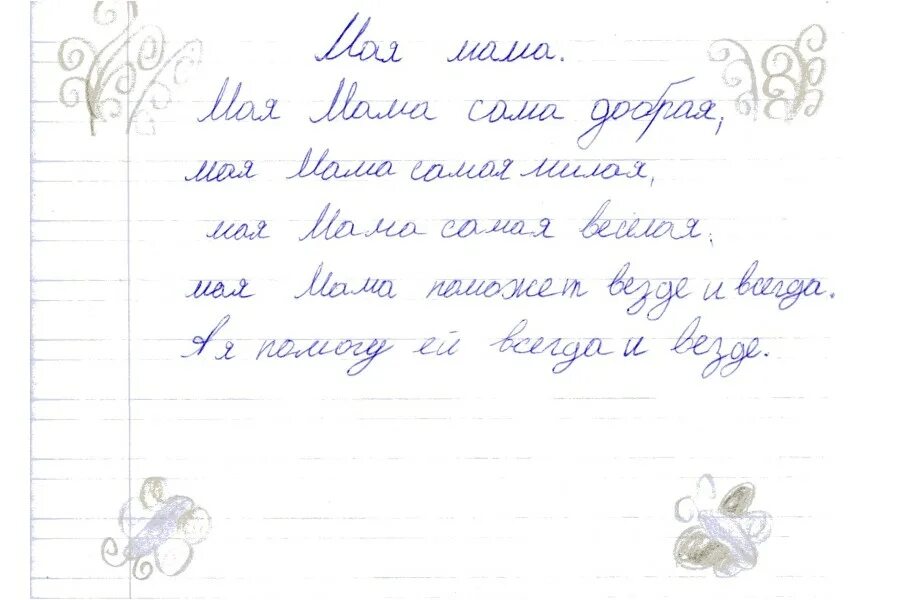 Мая мама.
Мая Мама сама добрая,
мая Мама самая милая,
мая Мама самая веселая,
мая Мама поможет везде и всегда.
А я помогу ей всегда и везде.